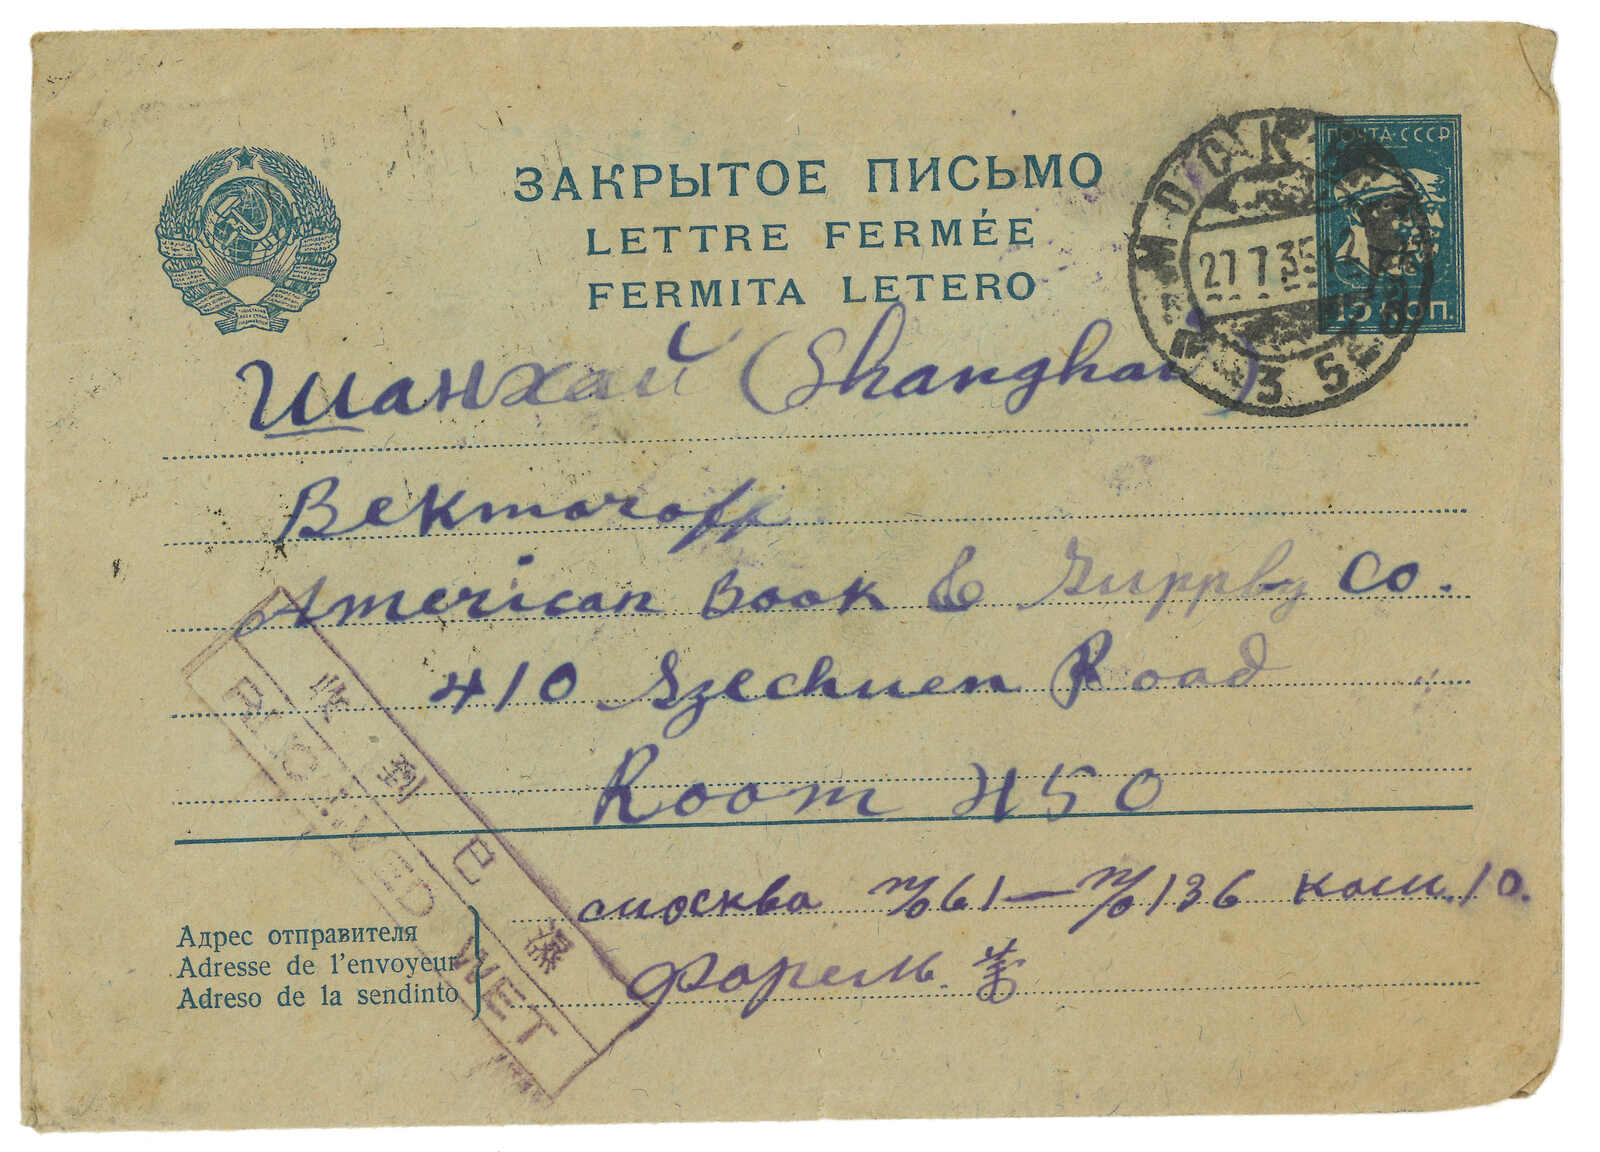 ЗАКРЫТОЕ ПИСЬМО
LETTRE FERMÉE
FERMITA LETERO
ПОЧТА·СССР
15 КОП.
МОСКВА
27 7 35 12
Шанхай (Shanghai)
Bekmaroff
American Book & Supply Co.
410 Szechuen Road
Room 450
来到已濕
RECEIVED WET
Адрес отправителя
Adresse de l'envoyeur
Adreso de la sendinto
Москва п/о 61 — п/о 136 комн. 10.
Фарель.